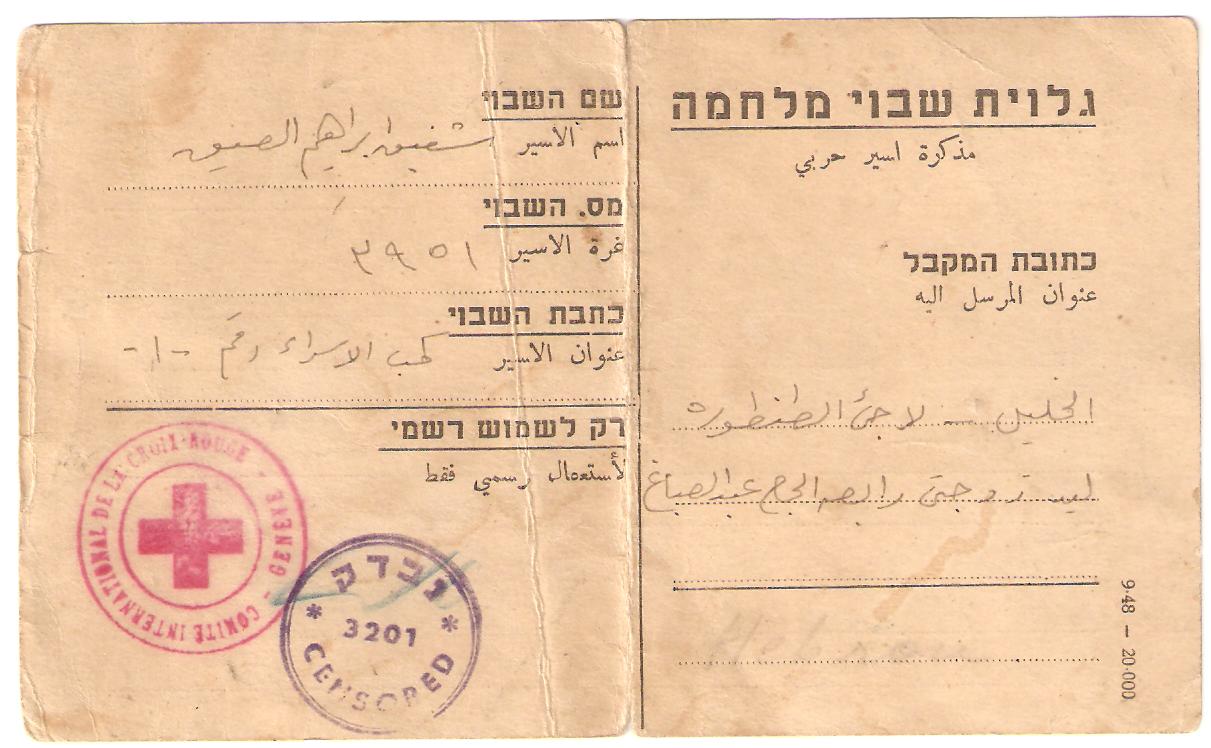 גלוית שבוי מלחמה
مذكرة اسير حربي
כתובת המקבל
عنوان المرسل اليه
الخليل — لاجئ الطنطوره
ليد زوجتي رابعه الحاج عبد الصباغ
9·48 — 20·000
שם השבוי
اسم الاسير شفيق ابراهيم
מס. השבוי
نمرة الاسير ٣٩٥١
כתבת השבוי
عنوان الاسير الاسراء رقم -١-
רק לשמוש רשמי
لأستعمال رسمي فقط
COMITÉ INTERNATIONAL DE LA CROIX-ROUGE - GENÈVE -
נבדק
* 3201 *
CENSORED